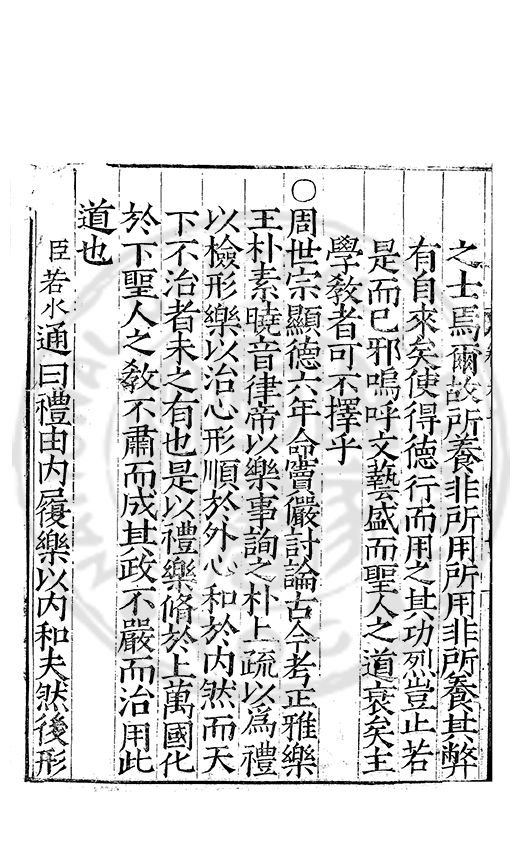 之士焉爾故所養非所用所用非所養其弊
有自來矣使得德行而用之其功烈豈止若
是而已邪嗚呼文藝盛而聖人之道衰矣主
學教者可不擇乎
○周世宗顯德六年命竇儼討論古今考正雅樂
王朴素曉音律帝以樂事詢之朴上疏以為禮
以檢形樂以治心形順於外心和於内然而天
下不治者未之有也是以禮樂脩於上萬國化
於下聖人之教不肅而成其政不嚴而治用此
道也
臣若水通曰禮由内履樂以内和夫然後形